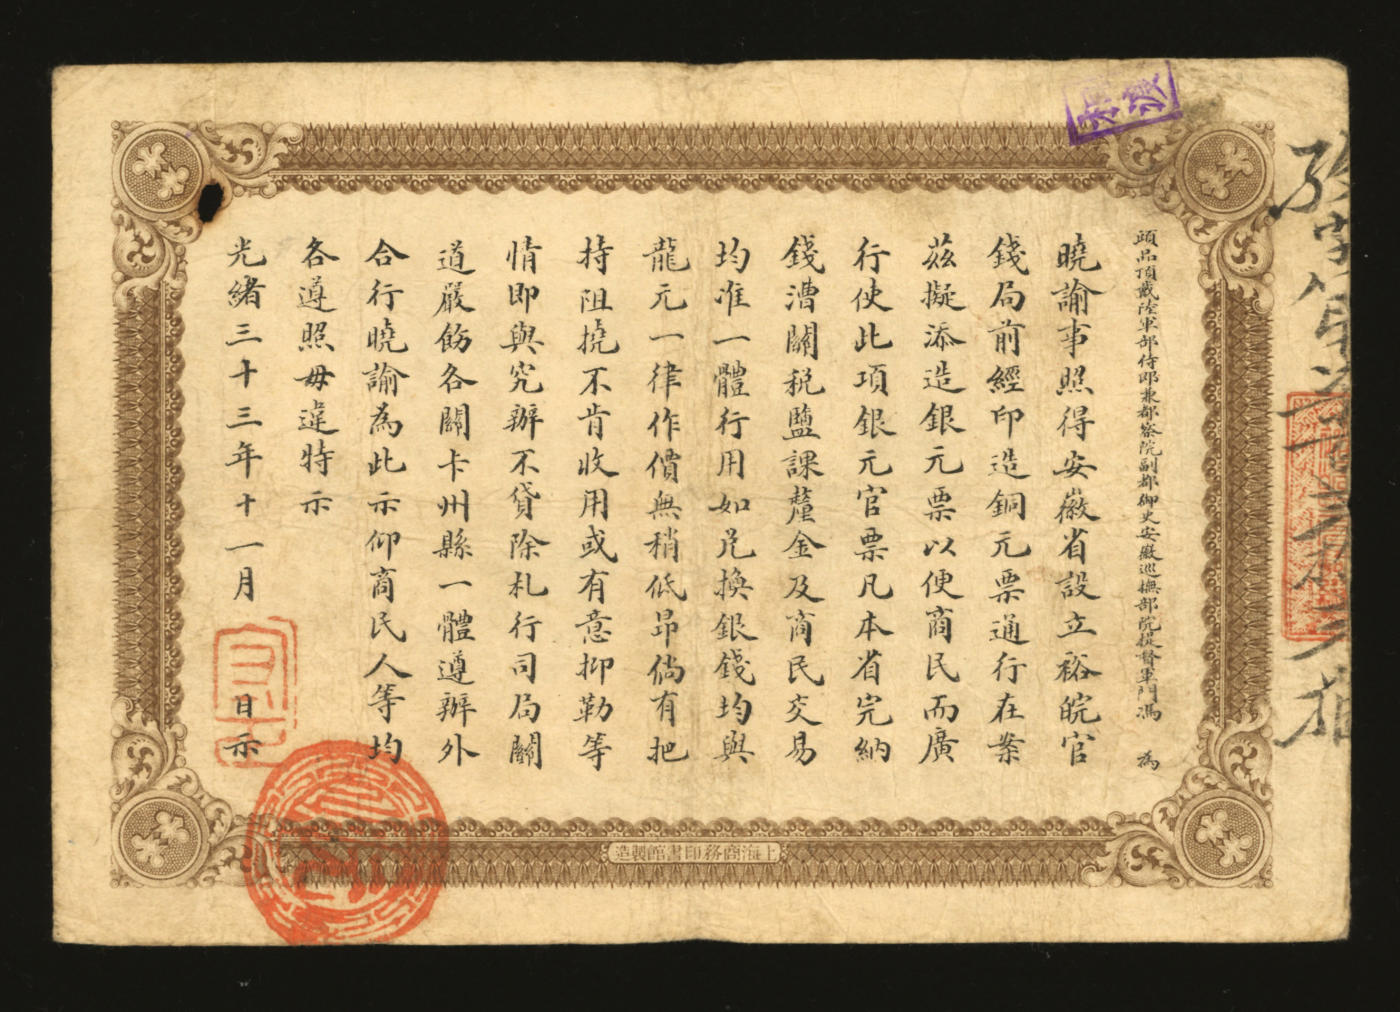 頭品頂戴陸軍部侍郎兼都察院副都御史安徽巡撫部院提督軍門馮 為
曉諭事照得安徽省設立裕皖官
錢局前經印造銅元票通行在案
茲擬添造銀元票以便商民而廣
行使此項銀元官票凡本省完納
錢漕關稅鹽課釐金及商民交易
均准一體行用如兌換銀錢均與
龍元一律作價無稍低昂倘有把
持阻撓不肯收用或有意抑勒等
情即與究辦不貸除札行司局關
道嚴飭各關卡州縣一體遵辦外
合行曉諭為此示仰商民人等均
各遵照毋違特示
光緒三十三年十一月 日示
上海商務印書館製造